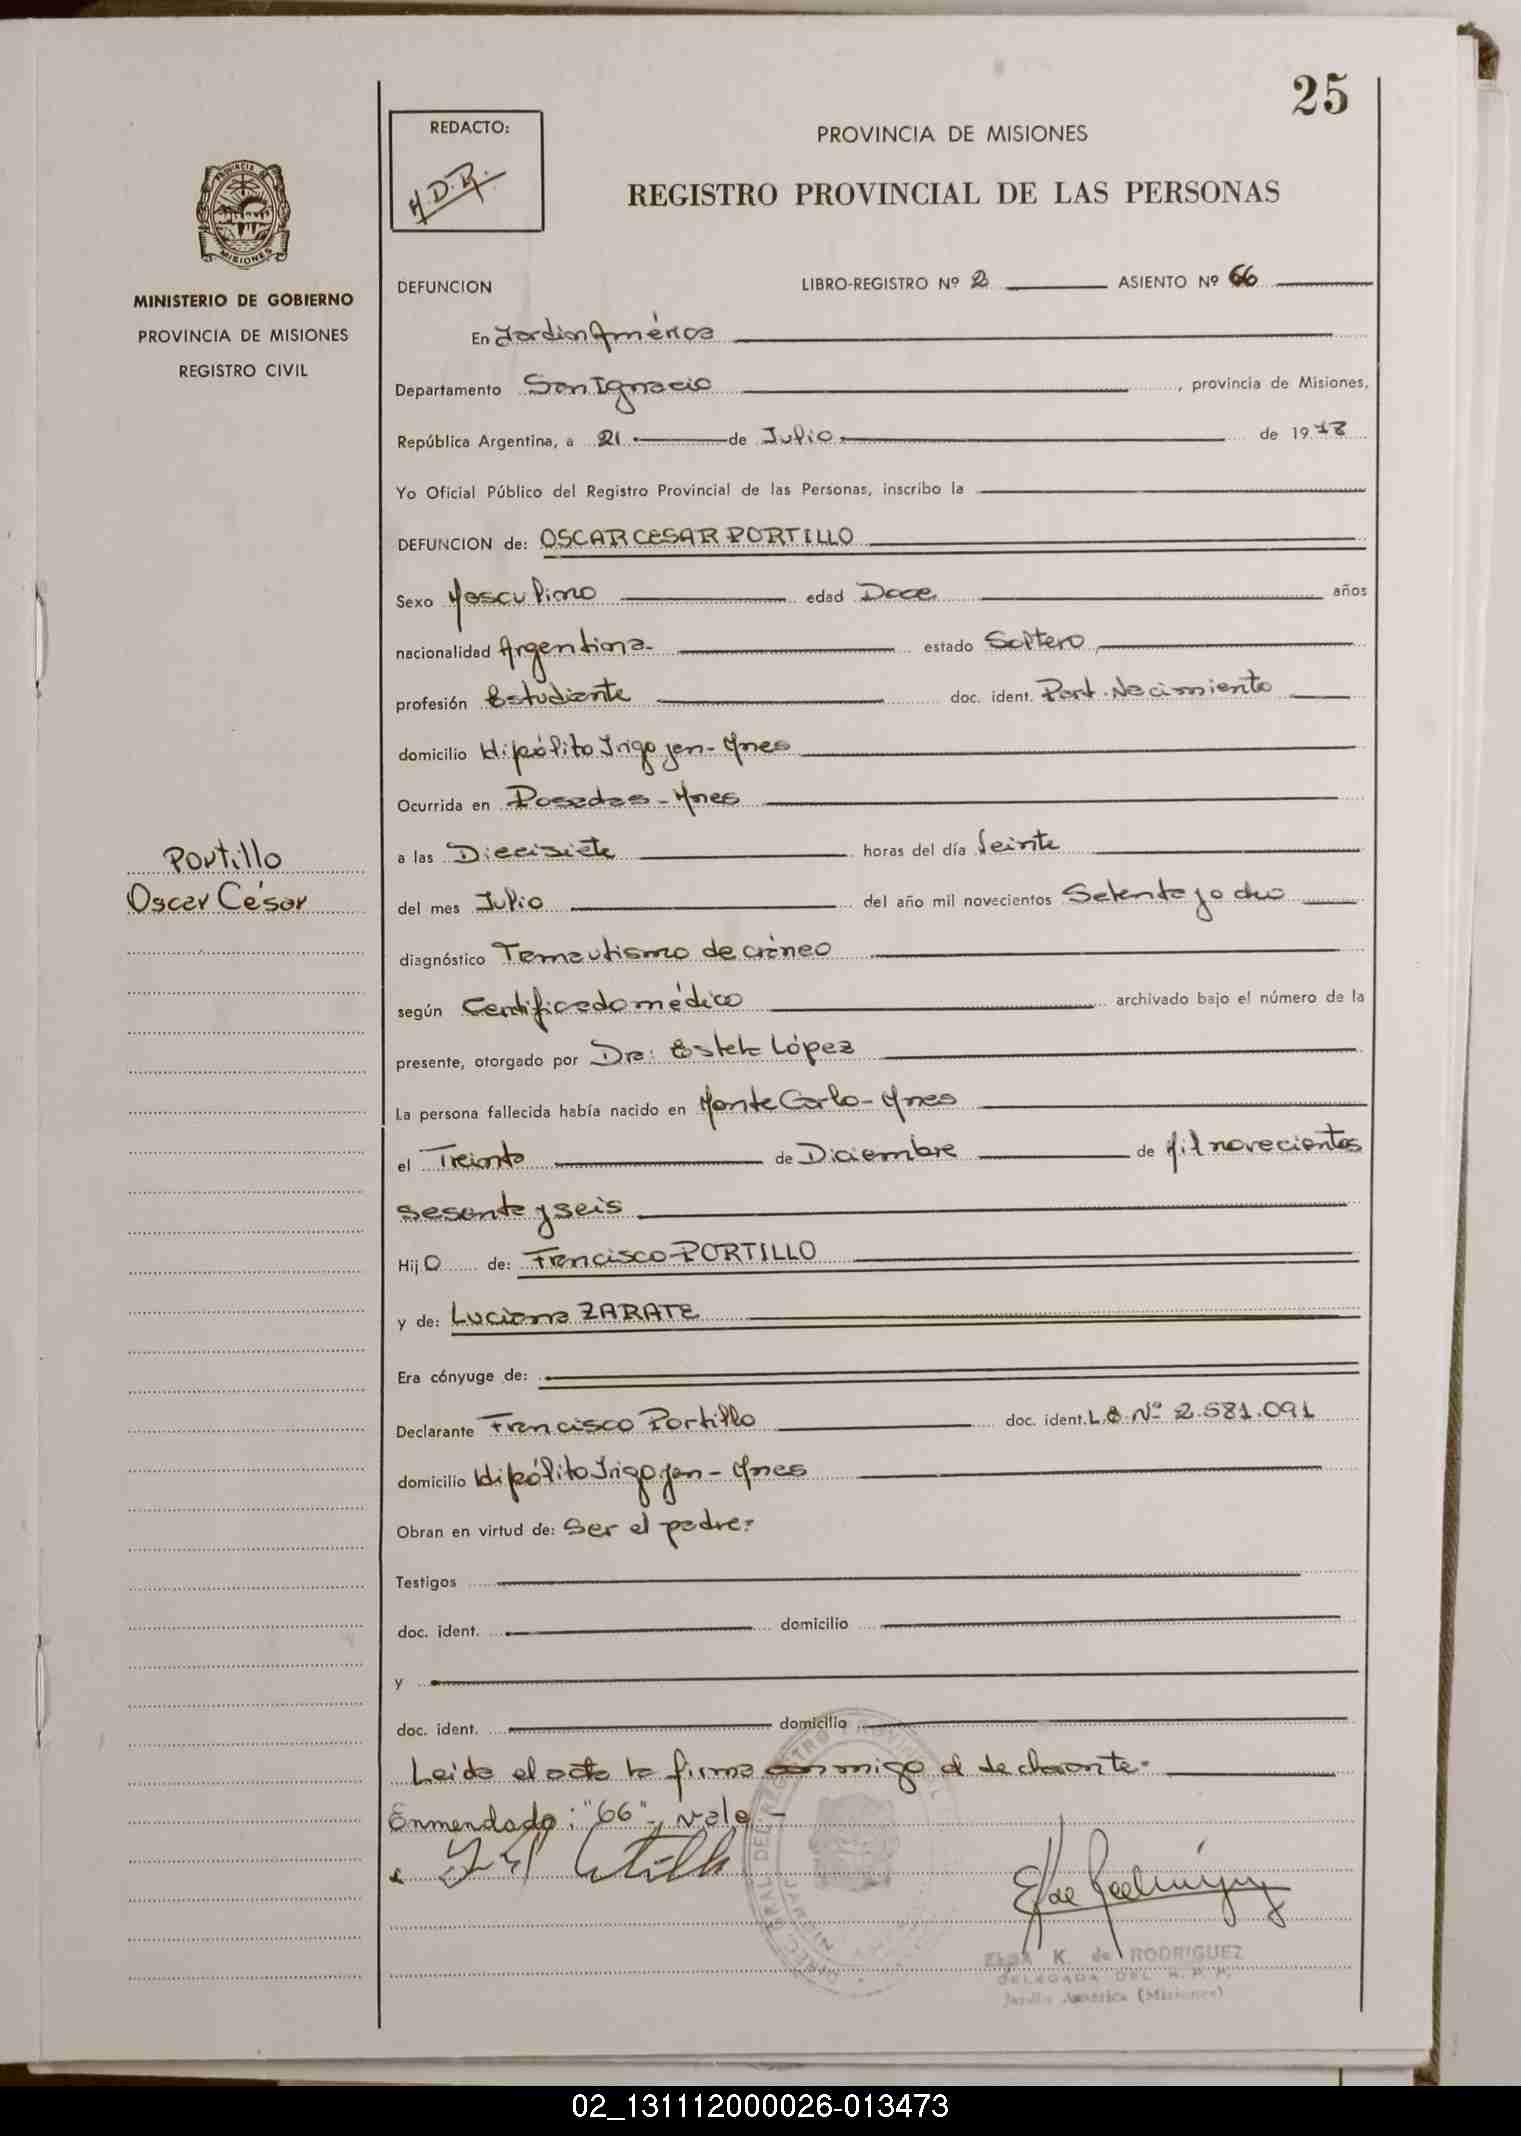 25
REDACTO:
M.D.R.
PROVINCIA DE MISIONES
REGISTRO PROVINCIAL DE LAS PERSONAS
PROVINCIA DE
MISIONES
MINISTERIO DE GOBIERNO
PROVINCIA DE MISIONES
REGISTRO CIVIL
Portillo
Oscar César
DEFUNCION LIBRO-REGISTRO Nº 2 ASIENTO Nº 66
En Jardin América
Departamento San Ignacio, provincia de Misiones,
República Argentina, a 21 de Julio de 1978
Yo Oficial Público del Registro Provincial de las Personas, inscribo la
DEFUNCION de: OSCAR CESAR PORTILLO
Sexo Masculino edad Doce años
nacionalidad Argentina estado Soltero
profesión Estudiante doc. ident. Part. Nacimiento
domicilio Hipólito Irigoyen - Mnes
Ocurrida en Posadas - Mnes
a las Diecisiete horas del día Veinte
del mes Julio del año mil novecientos Setenta y ocho
diagnóstico Temautismo de cráneo
según Certificado médico archivado bajo el número de la
presente, otorgado por Dra: Estela López
La persona fallecida había nacido en Monte Carlo - Mnes
el Treinta de Diciembre de Mil novecientos
sesenta y seis
Hijo de: Francisco PORTILLO
y de: Luciana ZARATE
Era cónyuge de:
Declarante Francisco Portillo doc. ident. L.E Nº 2.581.091
domicilio Hipólito Irigoyen - Mnes
Obran en virtud de: Ser el padre.
Testigos
doc. ident. domicilio
y
doc. ident. domicilio
Leida el acta la firma conmigo el declarante.
Enmendado: "66", vale -
ELBA K. de RODRIGUEZ
DELEGADA DEL R. P. P.
Jardín América (Misiones)
02_131112000026-013473